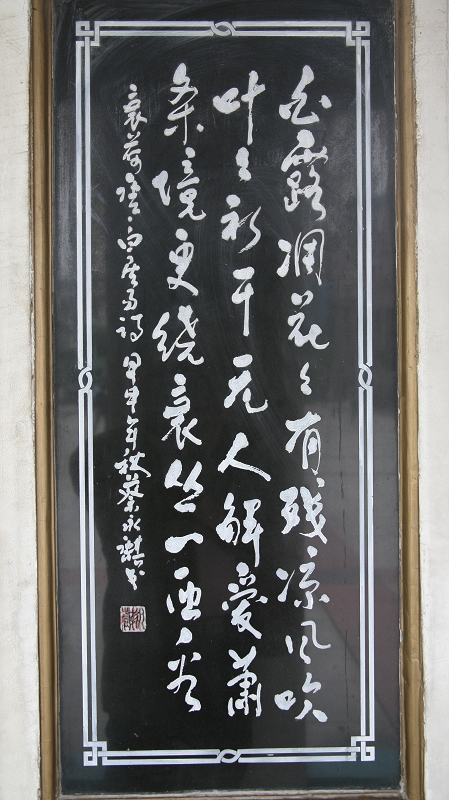 白露凋花々有残凉风吹
叶々初干无人解爱萧
条境更绕衰丛一匝看
衰荷 唐·白居易诗 甲申年秋蔡永书